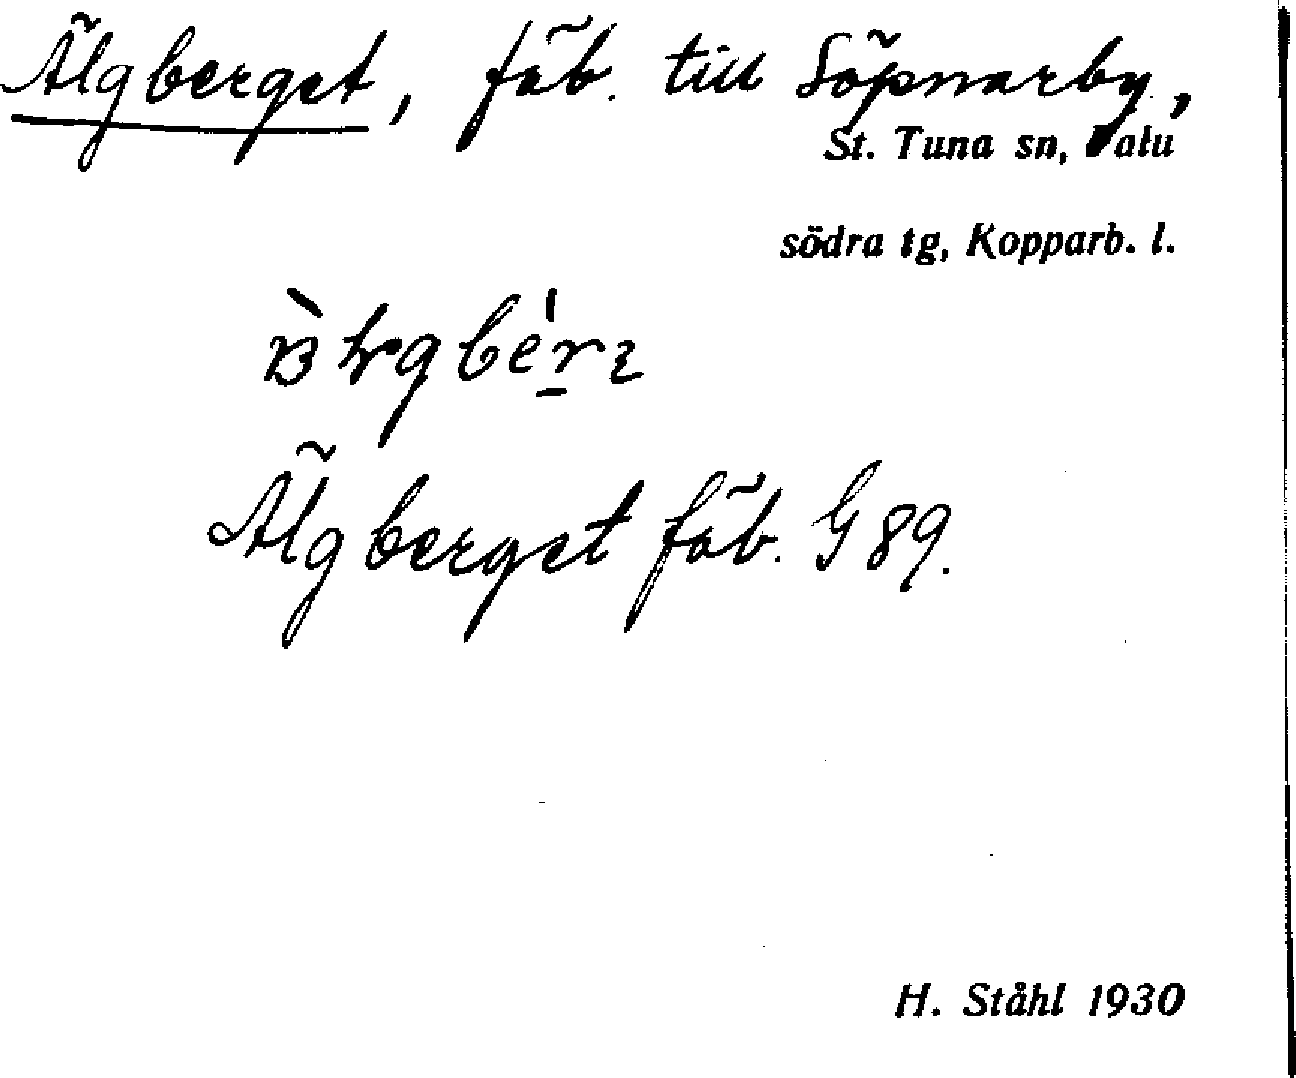 Älgberget, fäb. till Löpnarby,
St. Tuna sn, Falu
södra tg, Kopparb. l.
Älgberget fäb. G 89.
H. Ståhl 1930